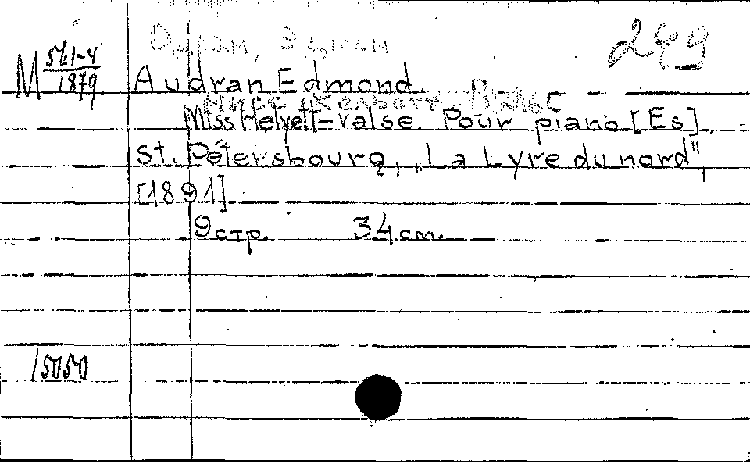 Одран, Эдмон 249
М 561-4/1879
Audran Edmond.
Мисс Хелъетт. Вальс
Miss Helyett-Valse. Pour piano [Es].
St. Pétersbourg, "La Lyre du nord",
[1891]
9 стр. 34 см.
15050